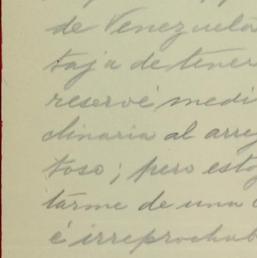 de Venezuela
taja de tener
reservé medi
clinaria al arre
toso; pero esto
tarme de una
é irreprochab